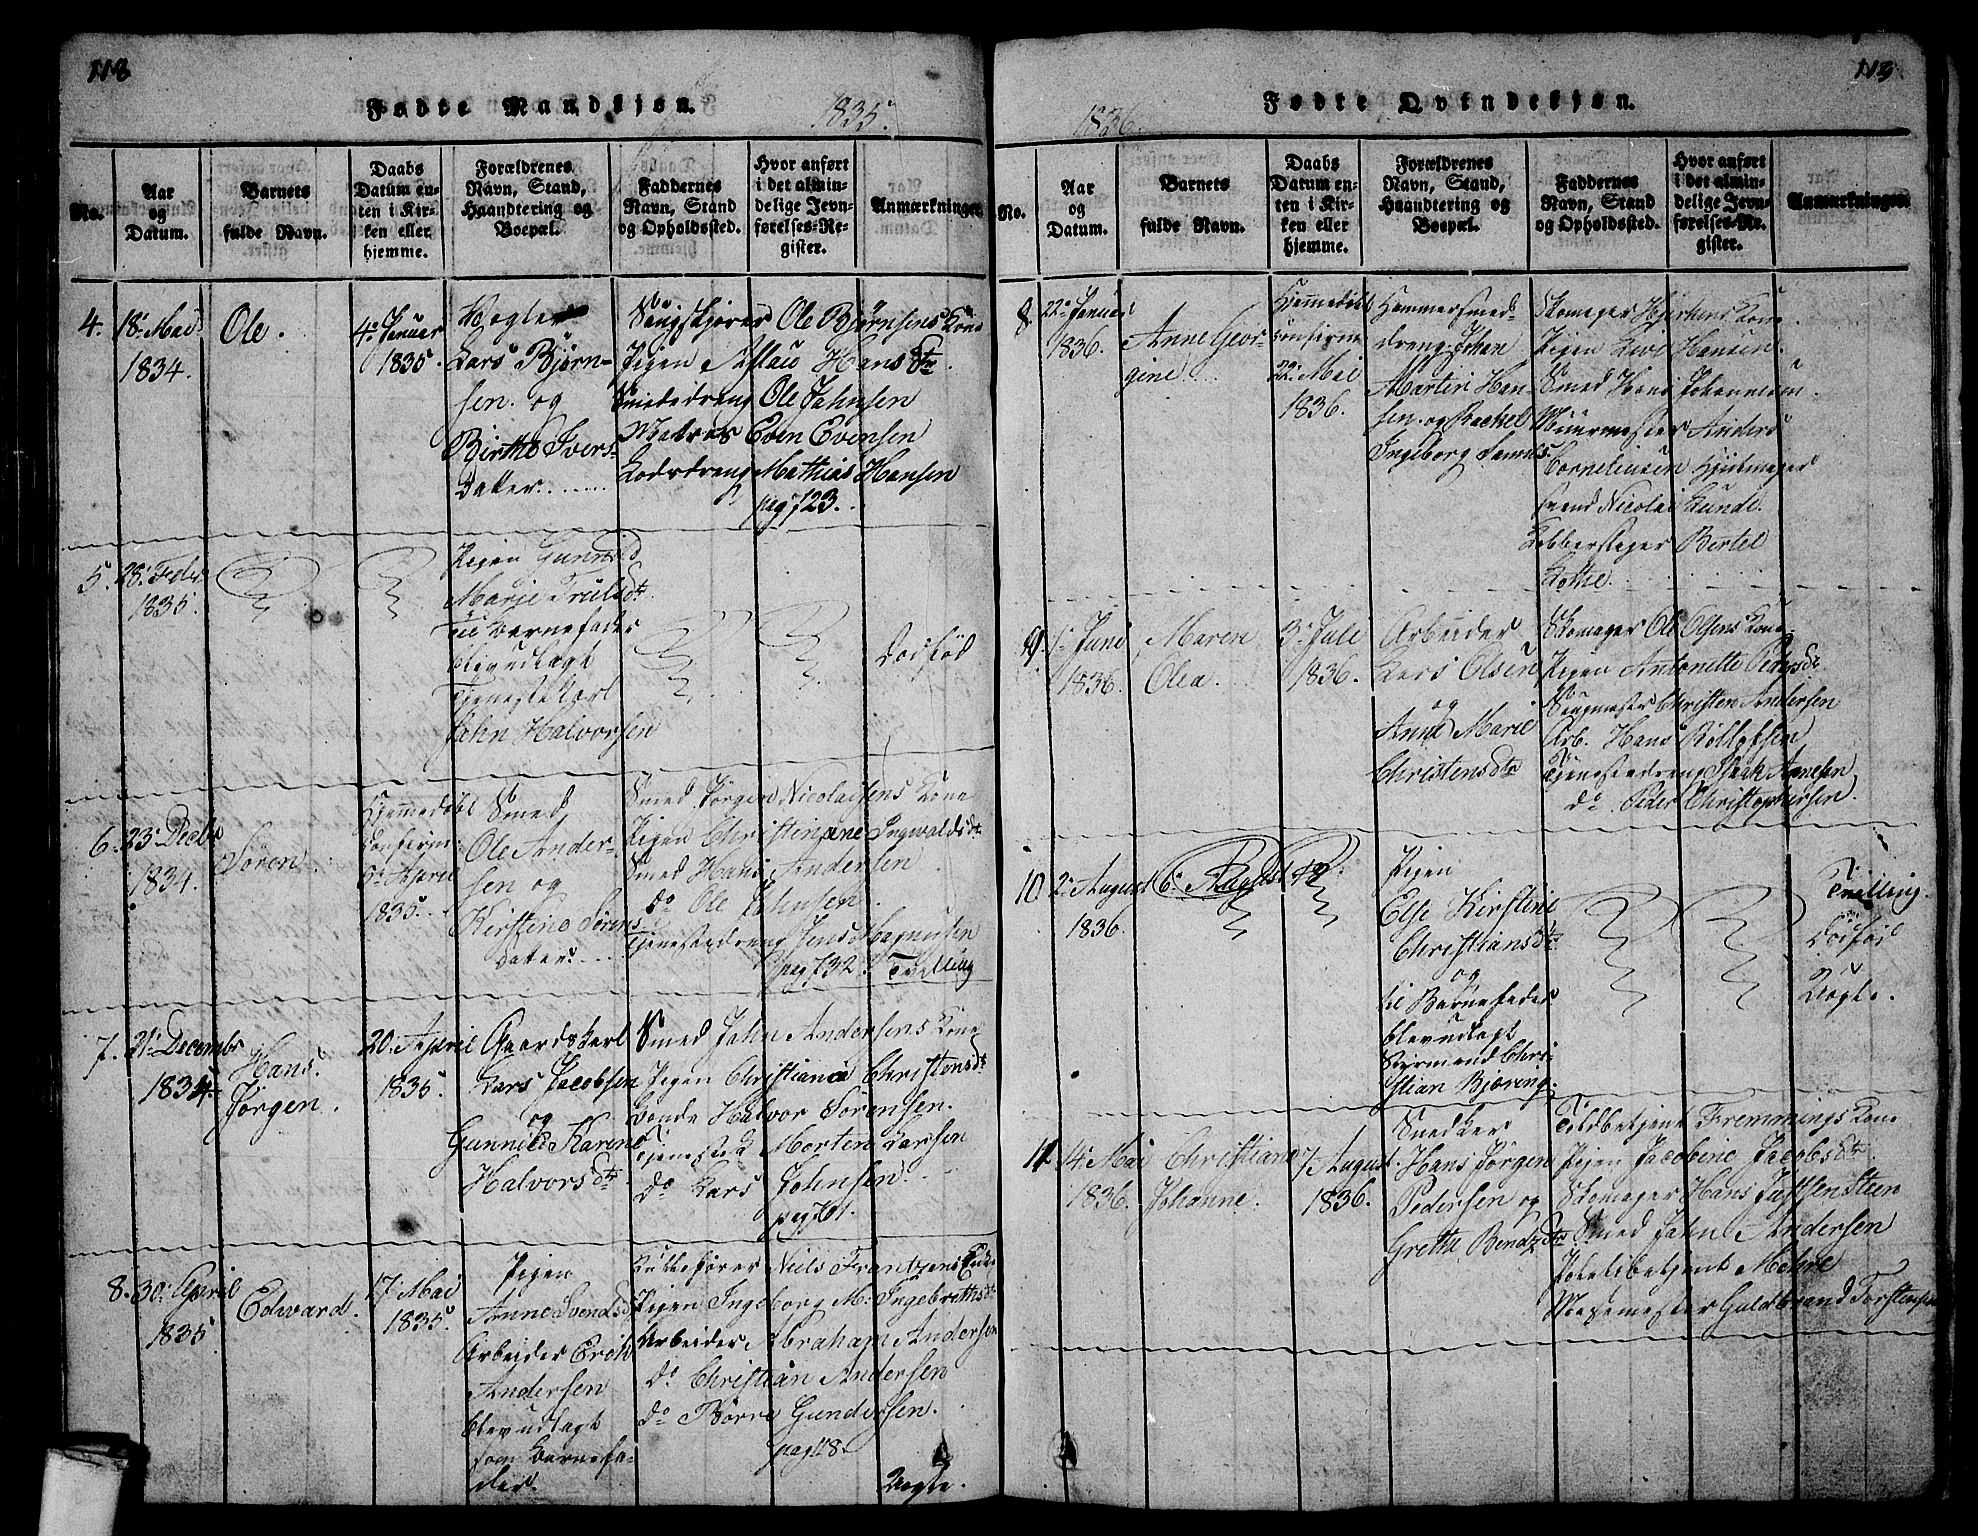 118
Fødte Mandkjøn.
1835.
No.
Aar
og
Datum.
Barnets
fulde Navn.
Daabs
Datum en-
ten i Kir-
ken eller
hjemme.
Forældrenes
Navn, Stand,
Haandtering og
Boepæl.
Faddernes
Navn, Stand
og Opholdssted.
Hvor anført
i det almin-
delige Jevn-
førelses-Re-
gister.
Anmærkninger
4.
18. Mai
1834.
Ole.
4. Januar
1835.
Lars Bjørn-
sen. og
Birthe Ivers-
datter
Ole Bjørnsens Kone
Pigen Aslau Hansdtr.
Smededreng Ole Jahnsen
Matros Even Evensen
Mathias Hansen
pag 123.
5.
28. Febr
1835.
Pigen Gunnild
Marie Trulsdtr
til Barnefader
blev udlagt
Tjenestekarl
Jahn Halvorsen
Dødfød
6.
23. Decbr
1834.
Søren
Hjemmedøbt
Confirm:
6. April
1835.
Smed
Ole Ander-
sen og
Kirstine Sørens-
datter.
Smed Jørgen Nicolaisens Kone
Pigen Christiane Ingwaldsdtr
Smed Hans Andersen
do Ole Johnsen
Tjenestedreng Jens Magnusen
pag 132. Tvilling
7.
31. Decembr
1834.
Hans
Jørgen.
20. April
1835.
Gaardskarl
Lars Jacobsen
og
Gunnild Karen
Halvorsdtr
Smed Jahn Andersens Kone
Pigen Christiane Christensdtr
Bonde Halvor Sørensen.
Tjenestek Morten Larsen
do Lars Johnsen.
pag 101.
8.
30. April
1835.
Edward.
17. Mai
1835.
Pigen
Anne Svendsd
Arbeider Erik
Andersen
blev udlagt
som Barnefa-
der.
Niels Frantzens Enke
Pigen Ingeborg M. Ingebretsdtr
Arbeider Abraham Andersen
do Christian Andersen
do Børre Gundersen.
pag 118.
Uægte.
113
Fødte Qvindekjøn.
1836.
No.
Aar
og
Datum.
Barnets
fulde Navn.
Daabs
Datum en-
ten i Kir-
ken eller
hjemme.
Forældrenes
Navn, Stand,
Haandtering og
Boepæl.
Faddernes
Navn, Stand
og Opholdssted.
Hvor anført
i det almin-
delige Jevn-
førelses-Re-
gister.
Anmærkninger
8.
22. Januar
1836.
Anne Geor-
gine.
Hjemmedøbt
confirm
22. Mai
1836.
Hammersmed-
dreng Johan
Martin Han-
sen. og Rachel
Ingeborg
Skomager Kone.
Pigen Hansen.
Smed Hans
Muurmester Anders
Cornelinsen
Svend Nicolai Lunde.
Kobberslager Bertel
9.
1. Juni
1836.
Maren
Olea.
3. Juli
1836.
Arbeider
Lars Olsen
og
Anne Marie
Christensdtr
Skomager Ole Olsens Kone
Pigen Antonette
Christen Andersen
Arb. Hans
Tjenestedreng Isaak Annesen
do Peder Christophersen.
10.
2. August
1836.
Pigen
Else Kirstine
Christiansdtr
og
til Barnefader
blev udlagt
Styrmand Chri-
stian Bjøring.
Tvilling.
Dødfød
Uægte.
11.
14. Mai
1836.
Christiane
Johanne.
7. August.
1836.
Snedker
Hans Jørgen
Pedersen og
Grethe
Toldbetjent Fremmings Kone
Pigen Jacobine Jacobsdtr
Skomager Hans
Smed Jahn Andersen
Politibetjent Mohre
Guldbrand Torstensen